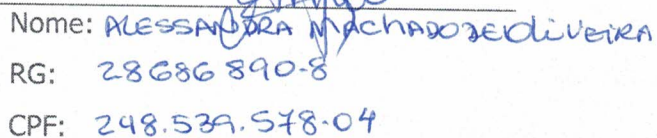 Nome: ALESSANDRA MACHADO DE OliVEIRA
RG: 28686890-8
CPF: 248.539.578-04